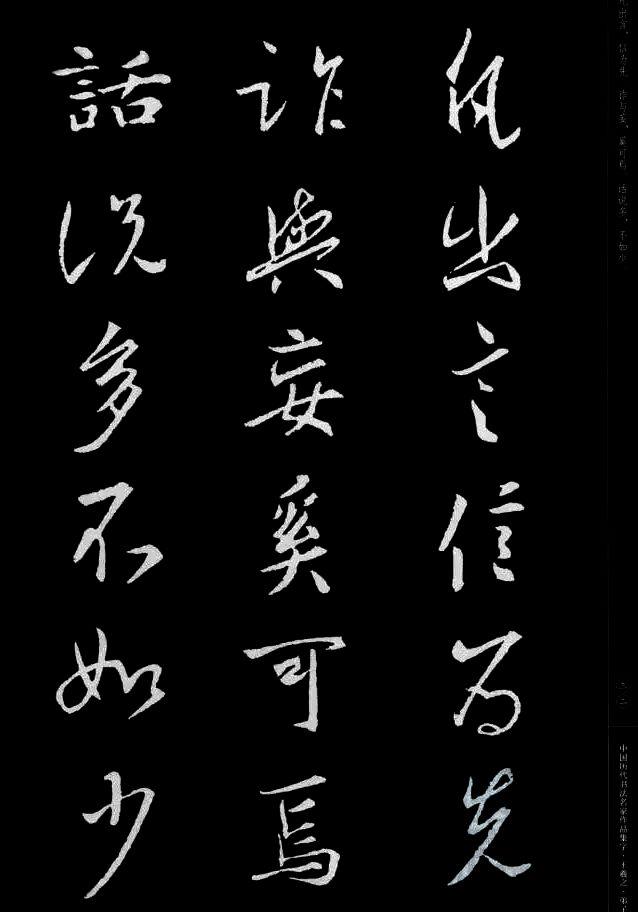 凡出言信为先
詐與妄奚可焉
話说多不如少
凡出言，信为先 诈与妄，奚可焉 话说多，不如少
中国历代书法名家作品集字·王羲之·弟子